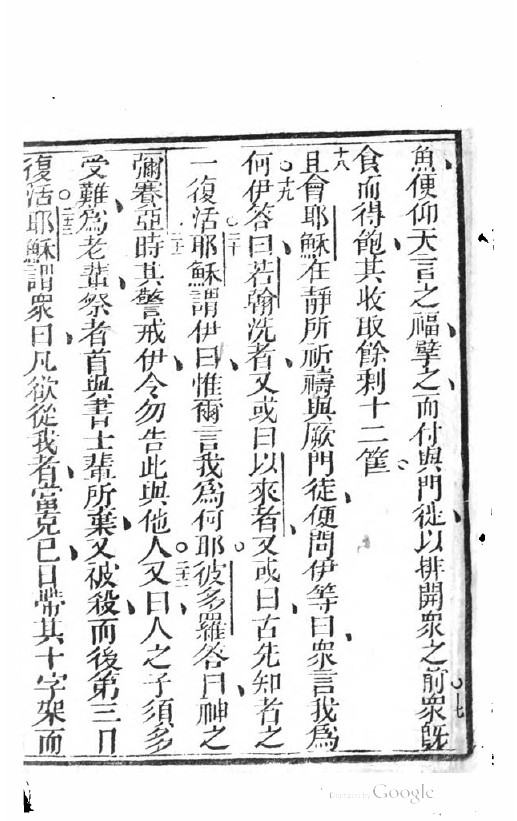 魚便仰天言之福擘之而付與門徒以排開衆之前衆旣 十七
食而得飽其收取餘剩十二筐
十八 且會耶穌在靜所祈禱與厥門徒便問伊等曰衆言我爲
何 十九 伊答曰若翰洗者又或曰以來者又或曰古先知者之
一復活 二十 耶穌謂伊曰惟爾言我爲何耶彼多羅答曰神之
彌賽亞時其警戒伊令勿告此與他人 二二 又曰人之子須多
受難爲老輩祭者首與書士輩所棄又被殺而後第三日
復活 二三 耶穌謂衆曰凡欲從我者當克己日帶其十字架而
Digitized by Google